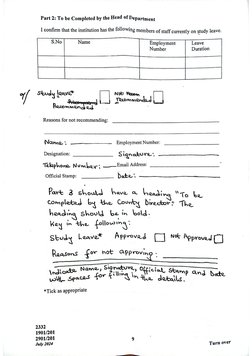 Part 2: To be Completed by the Head of Department
I confirm that the institution has the following members of staff currently on study leave.
S.No Name Employment Number Leave Duration
o/ Study leave* Not
Recommended Recommended
Reasons for not recommending:
Name: Employment Number:
Designation: Signature:
Telephone Number: Email Address:
Official Stamp: Date:
Part 3 should have a heading "To be
completed by the County Director". The
heading should be in bold.
Key in the following:
Study Leave* Approved Not Approved
Reasons for not approving:
Indicate Name, Signature, Official Stamp and Date
with spaces for filling in the details.
*Tick as appropriate
2332
1901/201
2901/201
July 2024
9
Turn over